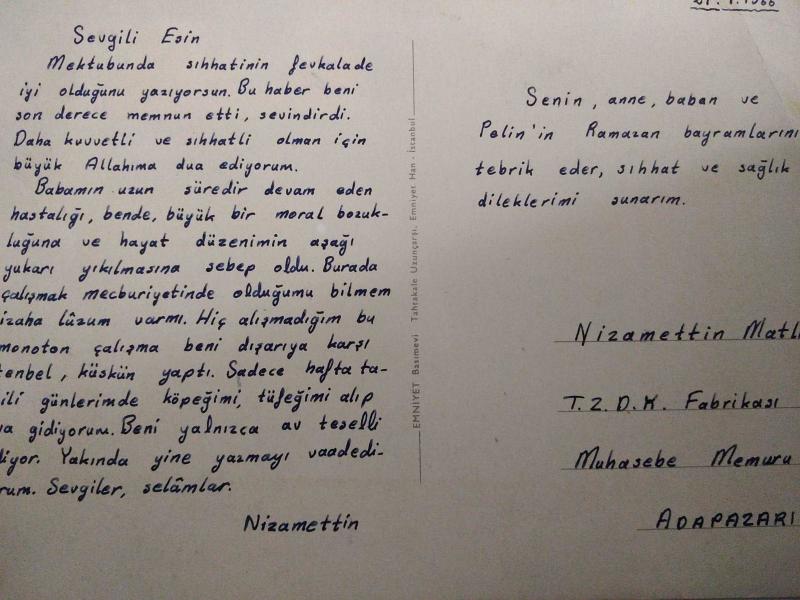 Sevgili Esin
Mektubunda sıhhatinin fevkalade
iyi olduğunu yazıyorsun. Bu haber beni
son derece memnun etti, sevindirdi.
Daha kuvvetli ve sıhhatli olman için
büyük Allahıma dua ediyorum.
Babamın uzun süredir devam eden
hastalığı, bende, büyük bir moral bozuk-
luğuna ve hayat düzenimin aşağı
yukarı yıkılmasına sebep oldu. Burada
çalışmak mecburiyetinde olduğumu bilmem
izaha lûzum varmı. Hiç alışmadığım bu
monoton çalışma beni dışarıya karşı
tenbel, küskün yaptı. Sadece hafta ta-
ili günlerimde köpeğimi, tüfeğimi alıp
gidiyorum. Beni yalnızca av teselli
diyor. Yakında yine yazmayı vaadedi-
rum. Sevgiler, selâmlar.
Nizamettin
EMNİYET Basımevi Tahtakale Uzunçarşı, Emniyet Han - İstanbul
Senin, anne, baban ve
Pelin'in Ramazan bayramlarını
tebrik eder, sıhhat ve sağlık
dileklerimi sunarım.
Nizamettin Matlı
T.Z.D.K. Fabrikası
Muhasebe Memuru
ADAPAZARI